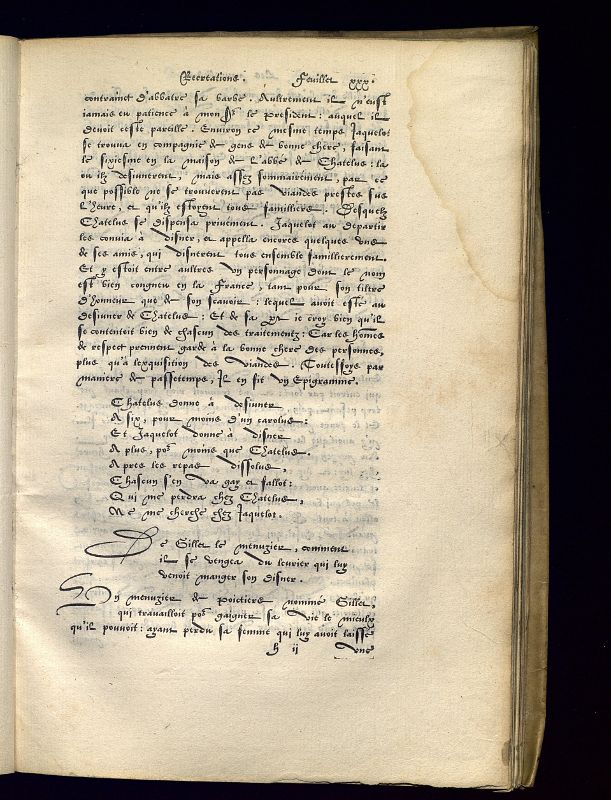 Recreations. Feuillet xxx.
contrainct d'abbatre sa barbe. Aultrement il n'eust
iamais eu patience à mon Sr. le president: auquel il
devoit ceste pareille. Environ ce mesme temps Jaquelot
se trouva en compagnie de gens de bonne chere, faisant
le sixiesme en la maison de l'abbé de Chatelus: là
ou ilz desiunerent, mais assez sommairement, par ce
que possible ne se trouverent pas viandes prestes sus
l'heure, et qu'ilz estoyent tous familliers. Desquelz
Chatelus se dispensa privement. Jaquelot au departir
les convia à disner, et appella encores quelques uns
de ses amis, qui disnerent tous ensemble famillierement.
Et y estoit entre aultres un personnage dont le nom
est bien congneu en la France, tant pour son tiltre
d'honneur que de son scavoir: lequel avoit esté au
desiuner de Chatelus: Et de sa part ie croy bien qu'il
se contentoit bien de chascun des traitementz: Car les hõmes
de respect prennent garde à la bonne chere des personnes,
plus qu'à l'exquisition des viandes. Toutesfoys par
maniere de passetemps, Il en fit un Epigramme.
Chatelus donne à desiuner
A six, pour moins d'un carolus:
Et Jaquelot donne à disner
A plus, por moins que Chatelus.
Apres les repas dissolus,
Chascun s'en va gay et fallot:
Qui me perdra chez Chatelus,
Ne me cherche chez Jaquelot.
De Gillet le menuzier, comment
il se vengea du levrier qui luy
venoit manger son disner.
Un menuzier de Poictiers nommé Gillet,
qui travailloit por gaigner sa vie le mieulx
qu'il pouvoit: ayant perdu sa femme qui luy avoit laissé
h ij une